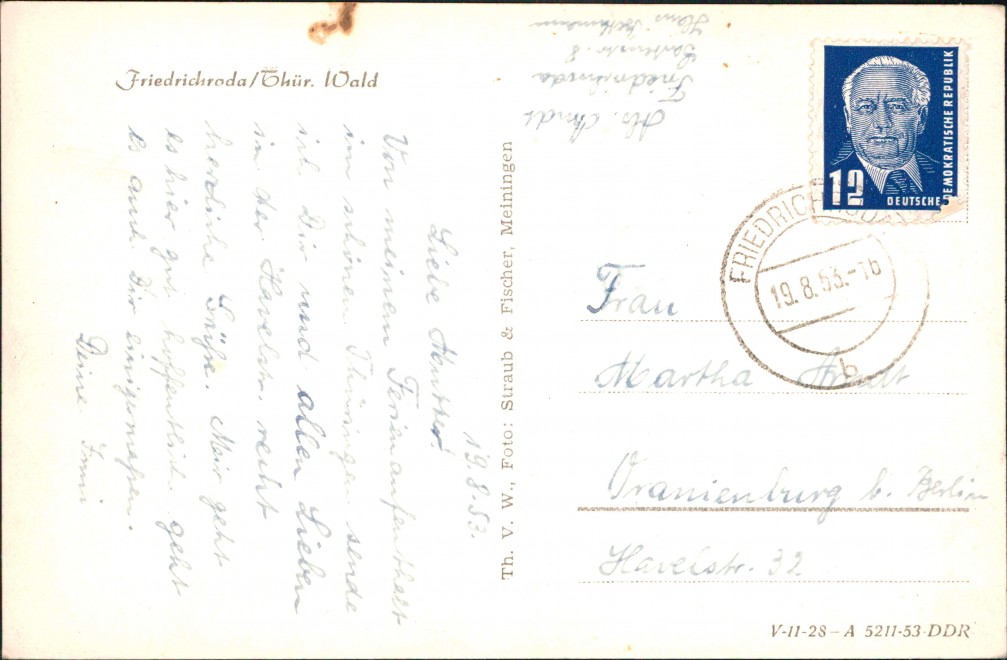 Friedrichroda/Thür. Wald
19.8.53.
Liebe Mutter!
Von meinem Ferienaufenthalt
im schönen Thüringen sende
ich Dir und allen Lieben
in der Havelstr. recht
herzliche Grüße. Mir geht
es hier gut, hoffentlich geht
es auch Dir einigermaßen.
Deine Irmi
Th. V. W., Foto: Straub & Fischer, Meiningen
Abs. Arndt
Friedrichroda
8
Hans
12
DEUTSCHE
DEMOKRATISCHE REPUBLIK
FRIEDRICHRODA
19.8.53.-16
b
Frau
Martha Arndt
Oranienburg b. Berlin
Havelstr. 32
V-11-28 – A 5211-53-DDR